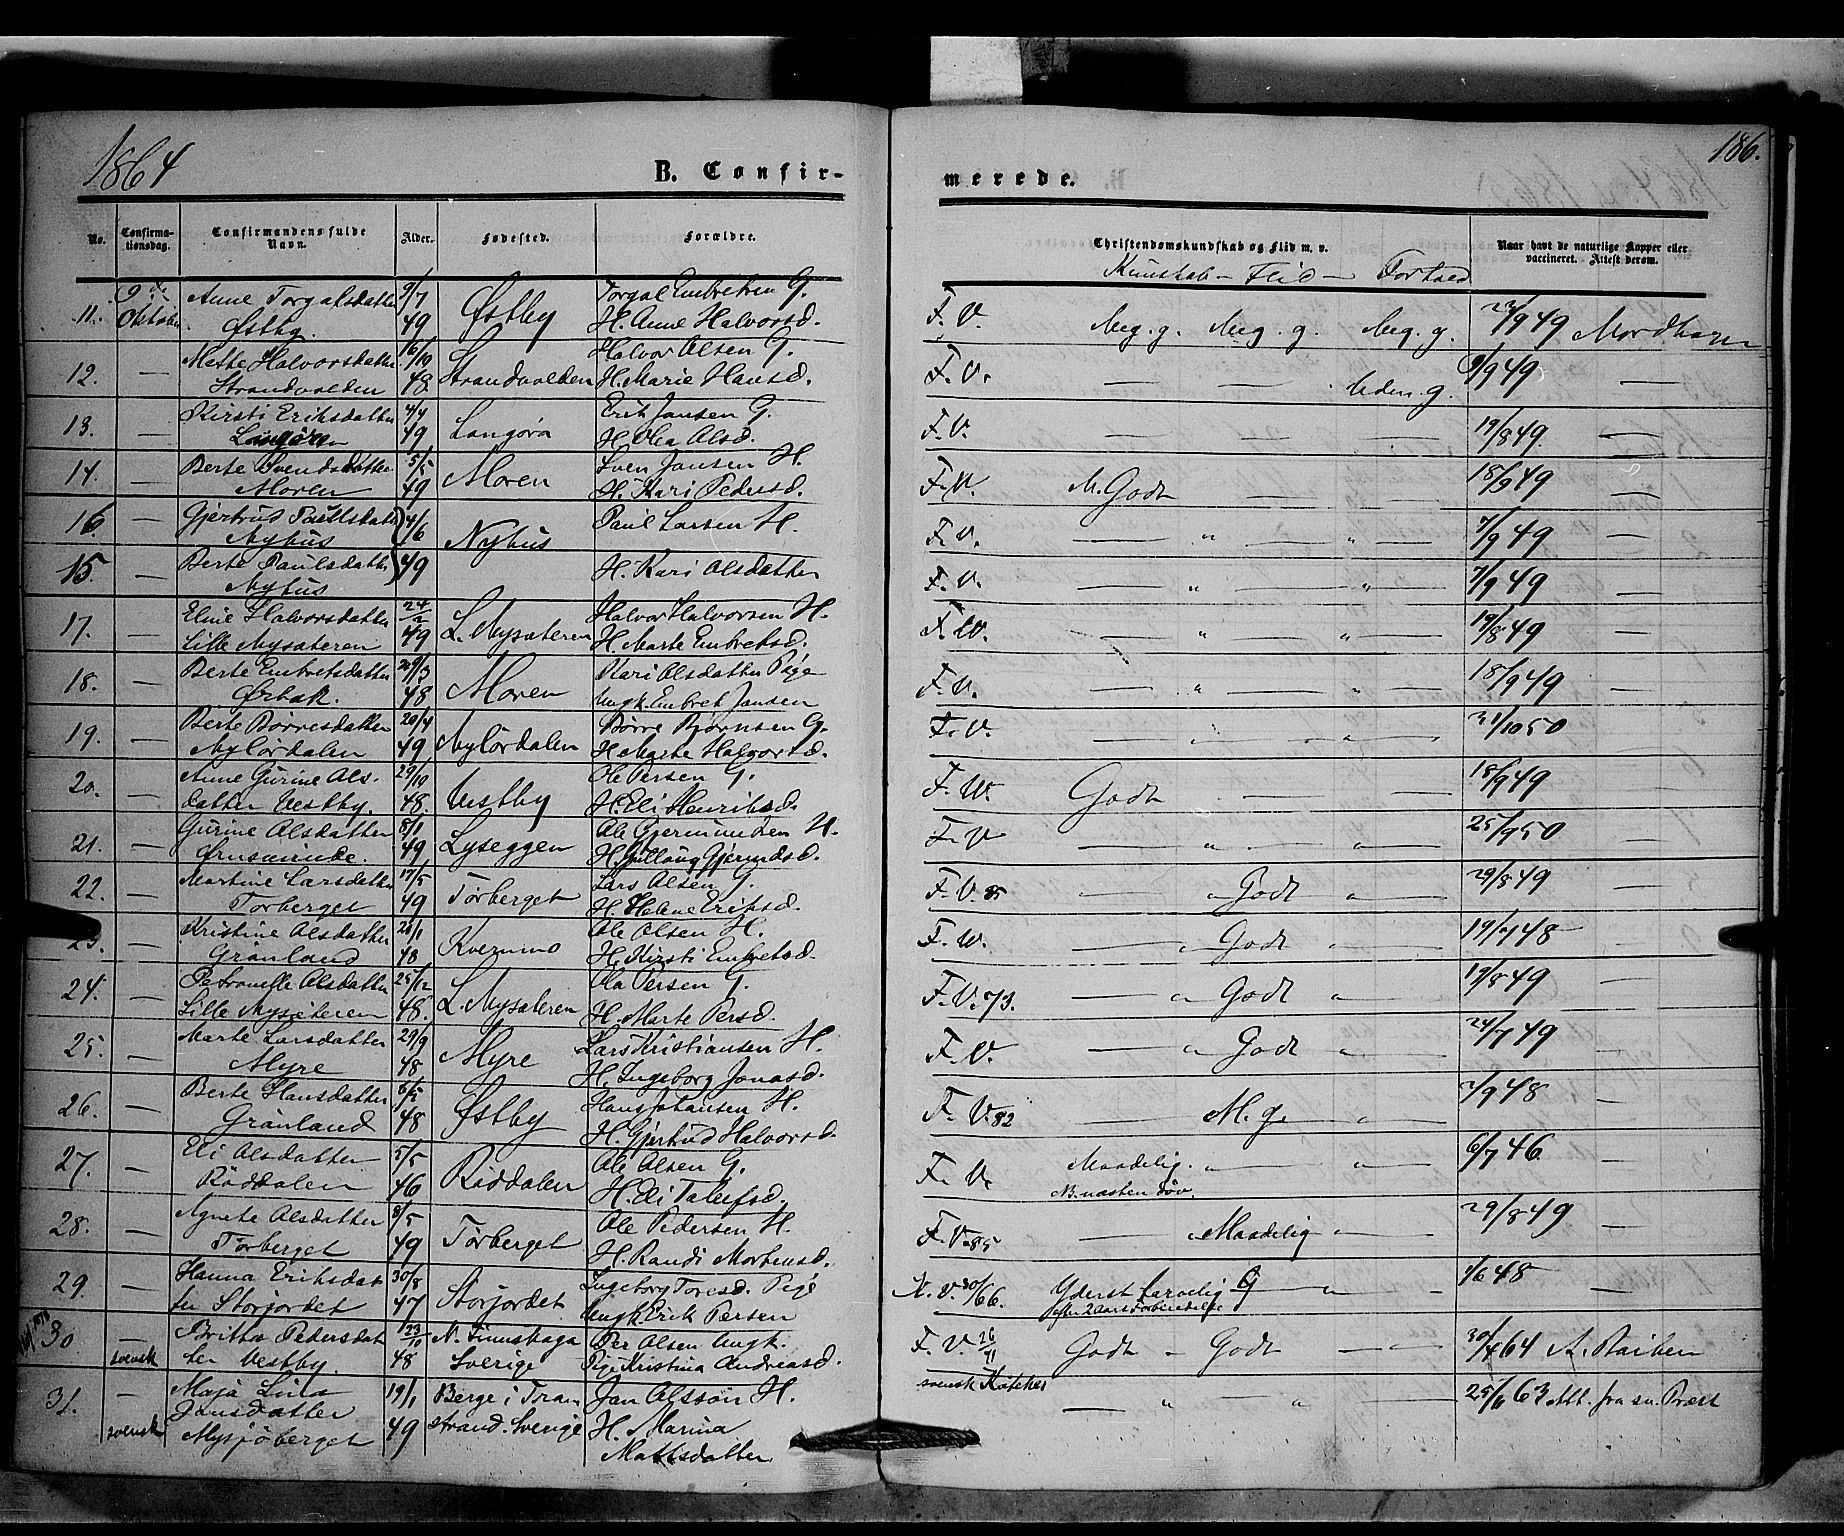 1864
B. Confir-
merede.
186.
No. Confirma-tionsdag. Confirmandens fulde Navn. Alder. Fødested. Forældre. Christendomskundskab og Flid m. v. Naar havt de naturlige Kopper eller vaccineret. Attest derom.
Kundskab - Flid - Forhold
11. 9de Oktober Anne Torgalsdatter Østby. 9/7 49 Østby Torgal Embretsen G. H. Anne Halvorsd. F. V. Meg. g. Meg. g. Meg. g. 9 49 Mordhorst
12. — Mette Halvorsdatter Strandvolden 16/10 48 Strandvolden Halvor Olsen G. H. Marie Hansd. F. V. — — Uden g. 9/9 49 —
13. — Kirsti Eriksdatter Langøra 4/4 49 Langøra Erik Jansen G. H. Olea Olsd. F. V. — — — 19/8 49. —
14. — Berte Svendsdatter Moren 5/5 49 Moren Sven Jansen H. H. Kari Pedersd. F. V. M. Godt — — 18/9 49 —
16. — Gjertrud Paulsdatter Nyhus 4/6 Nyhus Paul Larsen H. F. V. — " — " — 7/9 49 —
15. — Berte Paulsdatter Nyhus 49 H. Kari Olsdatter F. V. — " — " — 7/9 49 —
17. — Eline Halvorsdatter Lille Nysæteren 24/2 49 L. Nysæteren Halvor Halvorsen H. H. Marte Embretsd. F. W. — " — " — 19/8 49 —
18. — Berte Embretsdatter Ørbak. 29/3 48 Moren Kari Olsdatter Pige Ungk. Embret Jansen F. V. — " — " — 18/9 49 —
19. — Berte Børresdatter Nylördalen 20/4 49 Nylördalen Børre Bjørnsen G. H. Marte Halvorsd. F. V. — " — " — /10 50 —
20. — Anne Gurine Ols-datter Vestby. 29/10 48. Vestby Ole Persen G. H. Eli Henriksd. F. W. Godt — — 18/9 49 —
21. — Gurine Olsdatter 8/1 49 Lyseggen Ole Gjermundsen H. H. Gjermdsd. F. V — " — " — 25/9 50 —
22. — Martine Larsdatter Törberget 17/5 49 Törberget Lars Olsen G. H. Helene Eriksd. F. V. 85 — " Godt " 29/8 49 —
23. — Kristine Olsdatter Grönland 28/1 48 Kvernmo Ole Olsen H. H. Kirsti Embretsd. F. W. — " Godt " — 19/7 48 —
24. — Petronelle Olsdatter Lille Nysæteren 25/12 48. L. Nysæteren Ola Persen G. H. Marte Persd. F. V. 73. — " Godt " — 19/8 49 —
25. — Marte Larsdatter Myre 29/9 48 Myre Lars Kristiansen H. H. Ingeborg Jonasd. F. V. — " Godt " — 24/7 49 —
26. — Berte Hansdatter Grönland 6/5 48 Østby Hans Johansen H. H. Gjertrud Halvorsd. F. V. 82 — M. g. " — 7/9 48 —
27. — Eli Olsdatter Röddalen 5/5 46 Röddalen Ole Olsen G. H. Eli Tolefsd. F. V. Maadelig. " — " — NB. næsten döv. 6/7 46. —
28. — Agnete Olsdatter Törberget 8/5 49 Törberget Ole Pedersen H. H. Randi Mortensd. F. V. 85 — " Maadelig " — 29/8 49 —
29. — Hanna Eriksdat-ter Storjordet 30/8 47 Storjordet Ingeborg Toresd. Pige Ungk Erik Persen N. V. 30/66. Yderst tarvelig G " — efter 2 Aars Forberedelse 1/6 48 —
30 — svensk Brittor Pedersdat-ter Vestby. 23/10 48 N. Finnskoga Sverige Per Olsen Ungk. Pige Kristina Andreasd. F. V. 26/11 Godt - Godt — — 30/4 64 A. Raiben
31. — svensk Maja Lisa Jansdatter Mysjöberget 19/1 49 Berge i Tran strand. Sverige Jan Olsson H. H. Marina Mattsdatter svensk — " — " — 25/11 63 Att. fra sv. Præst